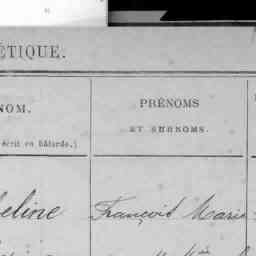 ÉTIQUE.
NOM.
PRÉNOMS
ET SURNOMS.
écrit en Bâtarde.)
eline François Marie